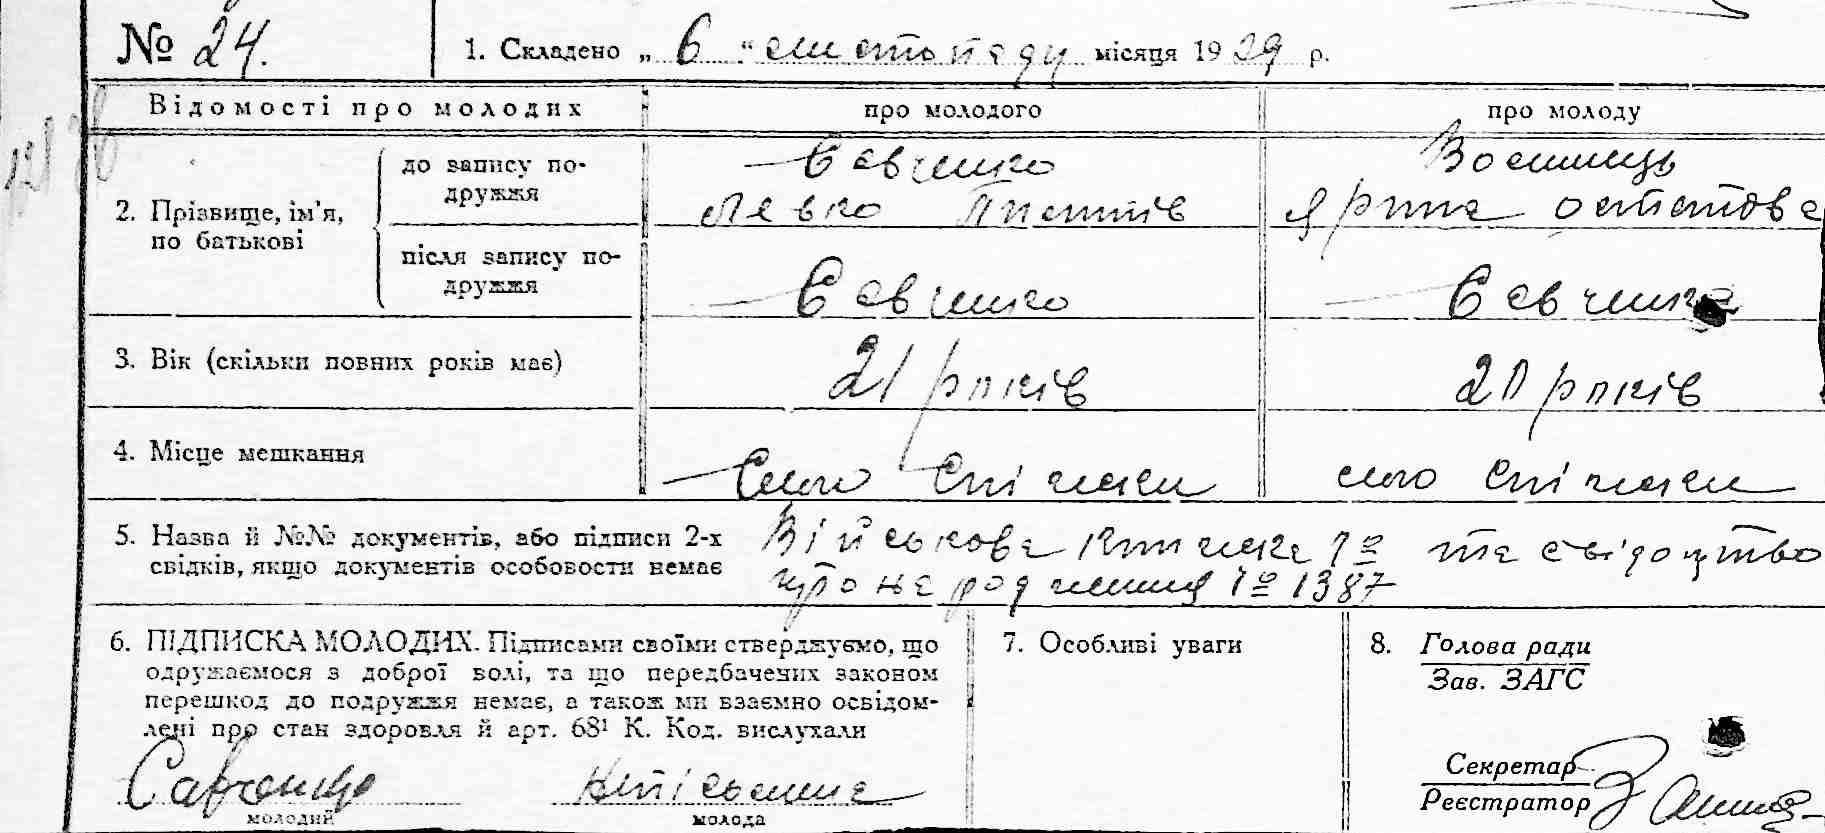 № 24. 1. Складено „ 6 “ листопаду місяця 19 29 р.
Відомості про молодих про молодого про молоду
2. Прізвище, ім'я, по батькові
до запису по-
дружжя
Савченко
Левко Пилипів
Ярина Остапова
після запису по-
дружжя
Савченко Савченко
3. Вік (скільки повних років має) 21 років 20 років
4. Місце мешкання Село Спіжки село Спіжки
5. Назва й №№ документів, або підписи 2-х
свідків, якщо документів особовости немає
Військова книжка № та свідоцтво
про народження № 1387
6. ПІДПИСКА МОЛОДИХ. Підписами своїми стверджуємо, що
одружаємося з доброї волі, та що передбачених законом
перешкод до подружжя немає, а також ми взаємно освідом-
лені про стан здоровля й арт. 68¹ К. Код. вислухали
Савченко Неписьменна
молодий молода
7. Особливі уваги
8. Голова ради
Зав. ЗАГС
Секретар
Реєстратор